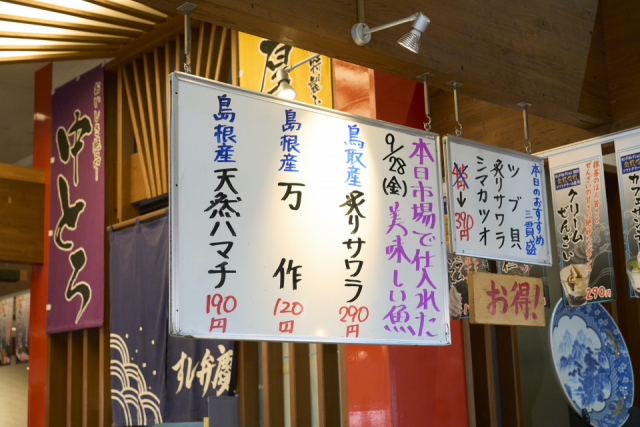 本日市場で仕入れた
美味しい魚
9/28(金)
鳥取産 炙りサワラ 290円
島根産 万作 120円
島根産 天然ハマチ 190円
本日のおすすめ
三貫盛
ツブ貝
炙りサワラ
シマカツオ
390円
お得!
中とろ
すし弁慶
クリームぜんざい
290円